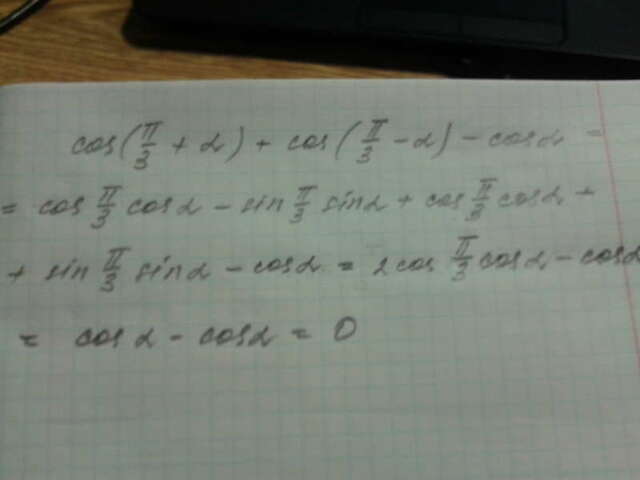 cos(π/3 + α) + cos(π/3 - α) - cosα =
= cos π/3 cosα - sin π/3 sinα + cos π/3 cosα +
+ sin π/3 sinα - cosα = 2cos π/3 cosα - cosα
= cosα - cosα = 0